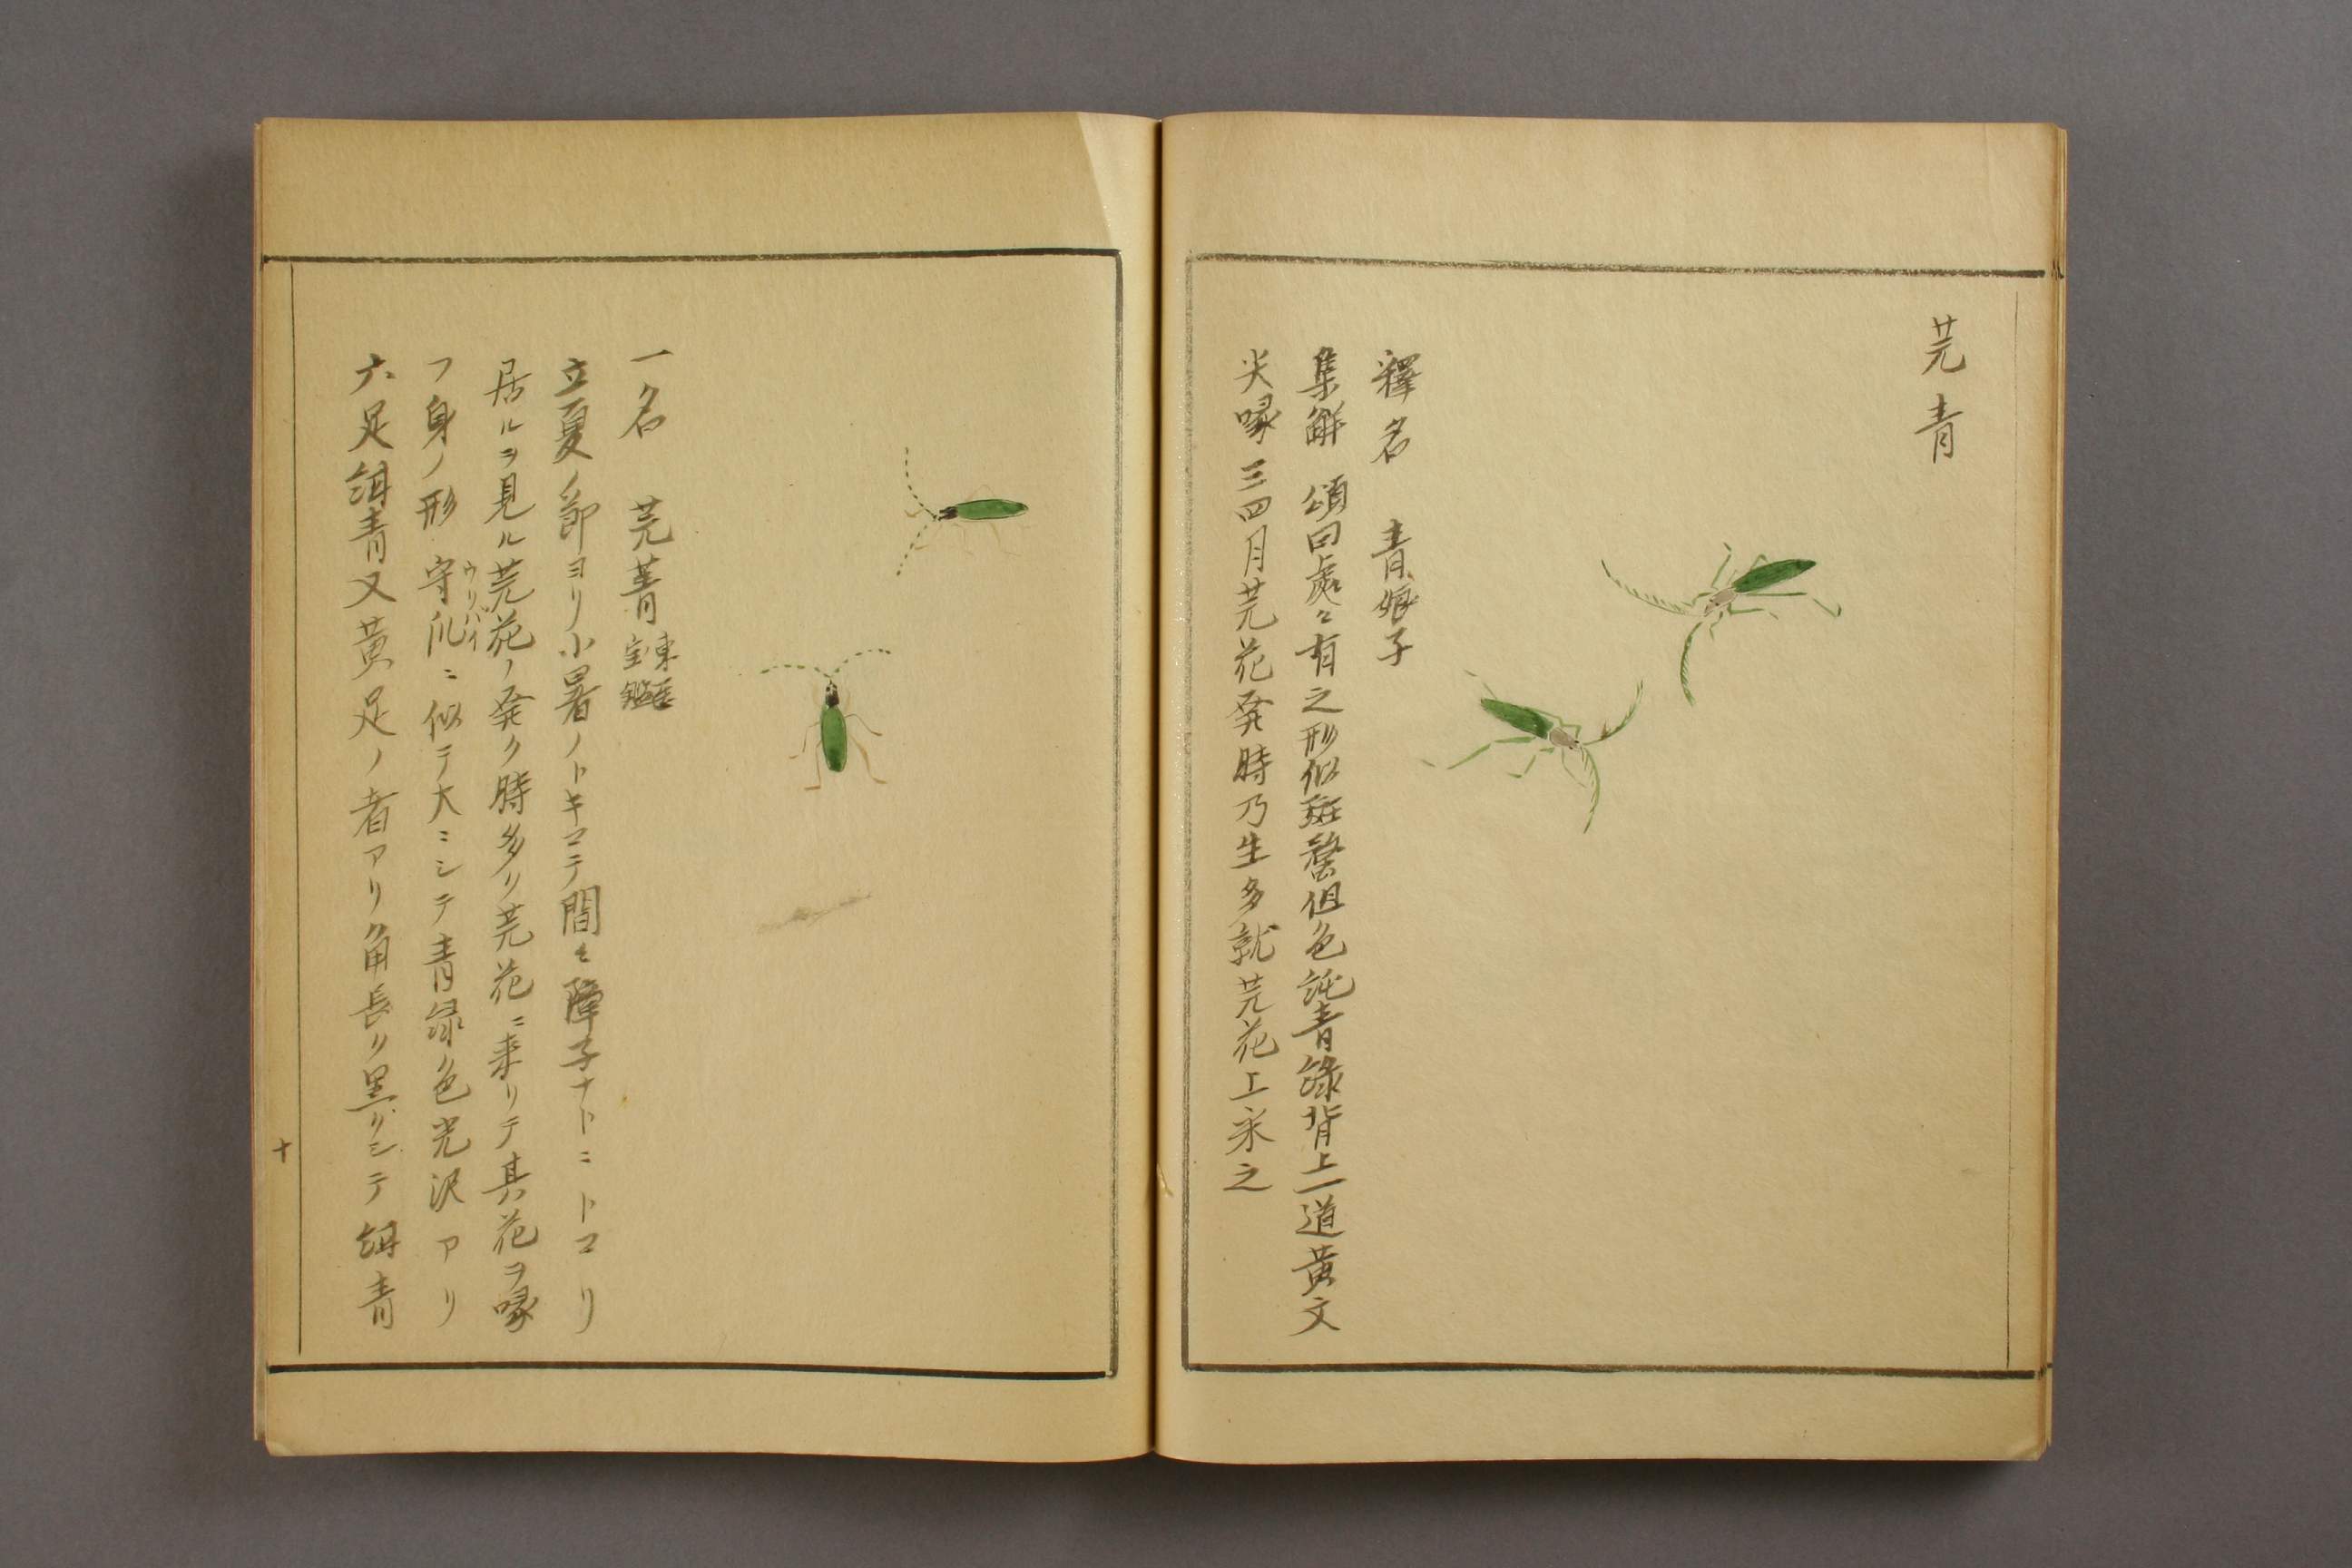 芫青
釋名　青娘子
集解　頌曰處々有之形似斑蝥但色純青緑背上一道黄文
尖喙三四月芫花発時乃生多就芫花上采之
一名　芫菁 東医宝鑑
立夏ノ節ヨリ小暑ノトキマテ間々障子ナトニトマリ
居ルヲ見ル芫花ノ発ク時多リ芫花ニ来リテ其花ヲ喙
フ身ノ形守瓜ニ似テ大ニシテ青緑色光沢アリ
ウリバイ
六足紺青又黄足ノ者アリ角長ク黒クシテ紺青
十